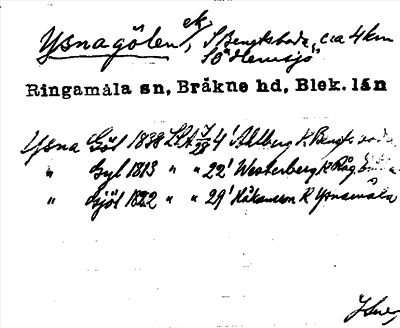 Ysnagölen, ek,
S Bengtsboda, c:a 4 km
SO Hemsjö
Ringamåla sn, Bräkne hd, Blek. län
Ysna Göl 1838 4' Ahlberg k Bengtsboda
" Gyl 1813 " " 22' Westerberg k
" Gjöl 1822 " " 29' Håkansson k Ysnamåla